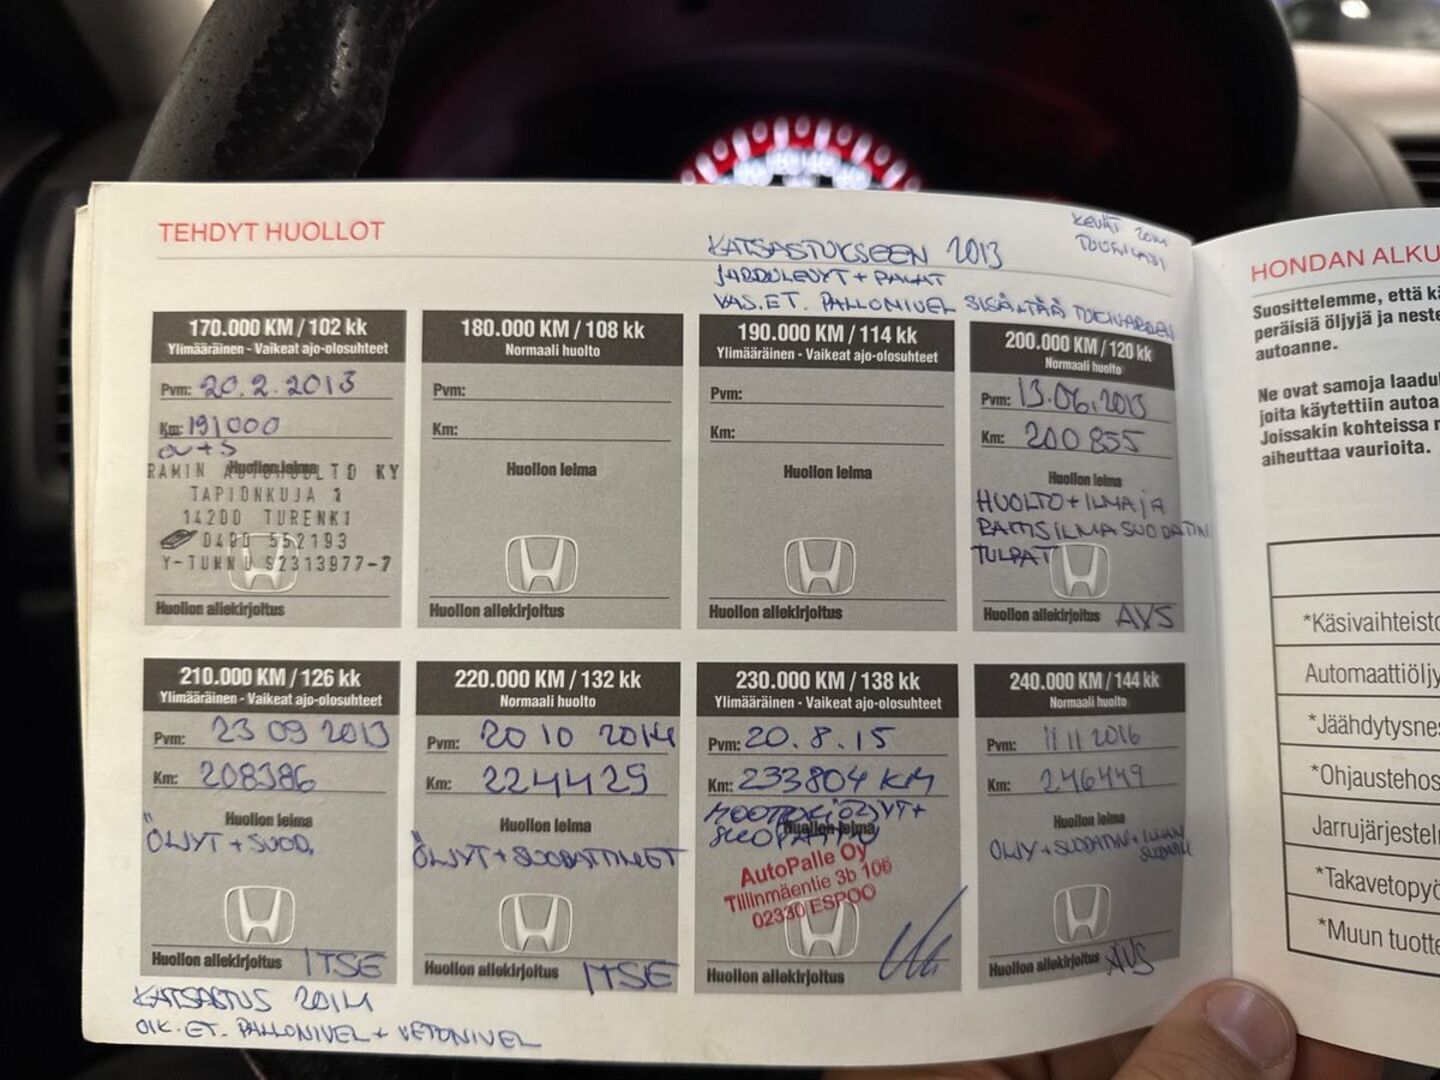 TEHDYT HUOLLOT
KEVÄT 2014
KATSASTUKSEEN 2013
JARRULEVYT + PALAT
VAS.ET. PALLONIVEL SISÄLTÄÄ TUKIVARREN
170.000 KM / 102 kk
Ylimääräinen - Vaikeat ajo-olosuhteet
Pvm: 20.2.2013
Km: 191000
ÖV+S
Huollon leima
RAMIN AUTOHUOLTO KY
TAPIONKUJA 1
14200 TURENKI
0400 552193
Y-TUNNUS2313977-7
Huollon allekirjoitus
180.000 KM / 108 kk
Normaali huolto
Pvm:
Km:
Huollon leima
Huollon allekirjoitus
190.000 KM / 114 kk
Ylimääräinen - Vaikeat ajo-olosuhteet
Pvm:
Km:
Huollon leima
Huollon allekirjoitus
200.000 KM / 120 kk
Normaali huolto
Pvm: 13.06.2013
Km: 200855
Huollon leima
HUOLTO + ILMA JA
RAITISILMASUODATIN
TULPAT
Huollon allekirjoitus AVS
210.000 KM / 126 kk
Ylimääräinen - Vaikeat ajo-olosuhteet
Pvm: 23 09 2013
Km: 208386
Huollon leima
ÖLJYT + SUOD.
Huollon allekirjoitus ITSE
220.000 KM / 132 kk
Normaali huolto
Pvm: 20 10 2014
Km: 224429
Huollon leima
ÖLJYT + SUODATTIMET
Huollon allekirjoitus ITSE
230.000 KM / 138 kk
Ylimääräinen - Vaikeat ajo-olosuhteet
Pvm: 20.8.15
Km: 233804 KM
MOOTTORIÖLJYT +
SUODATTIN
Huollon leima
AutoPalle Oy
Tillinmäentie 3b 106
02330 ESPOO
Huollon allekirjoitus
240.000 KM / 144 kk
Normaali huolto
Pvm: 11 11 2016
Km: 246449
Huollon leima
ÖLJY + SUODATIN + ILMAN
SUODATIN
Huollon allekirjoitus AVS
KATSASTUS 2014
OIK. ET. PALLONIVEL + VETONIVEL
HONDAN ALKU
Suosittelemme, että kä
peräisiä öljyjä ja neste
autoanne.
Ne ovat samoja laadul
joita käytettiin autoa
Joissakin kohteissa m
aiheuttaa vaurioita.
*Käsivaihteisto
Automaattiöljy
*Jäähdytysnes
*Ohjaustehos
Jarrujärjestelm
*Takavetopyö
*Muun tuotte